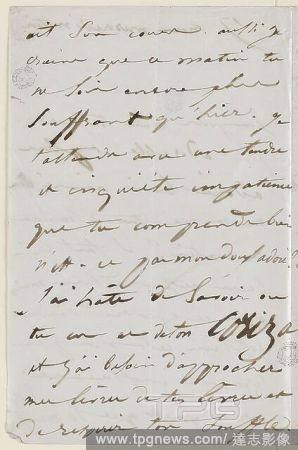 ait son cours. aussi je
crains que ce matin tu
ne sois encore plus
souffrant qu'hier. je
t'attends avec une tendre
et inquiète impatience
que tu comprends bien
n'est-ce pas mon doux adoré?
J'ai hâte de savoir où
tu en es de ton coriza
et j'ai besoin d'approcher
mes lèvres de tes lèvres et
de respirer ton souffle
TPG
www.tpgnews.com/達志影像